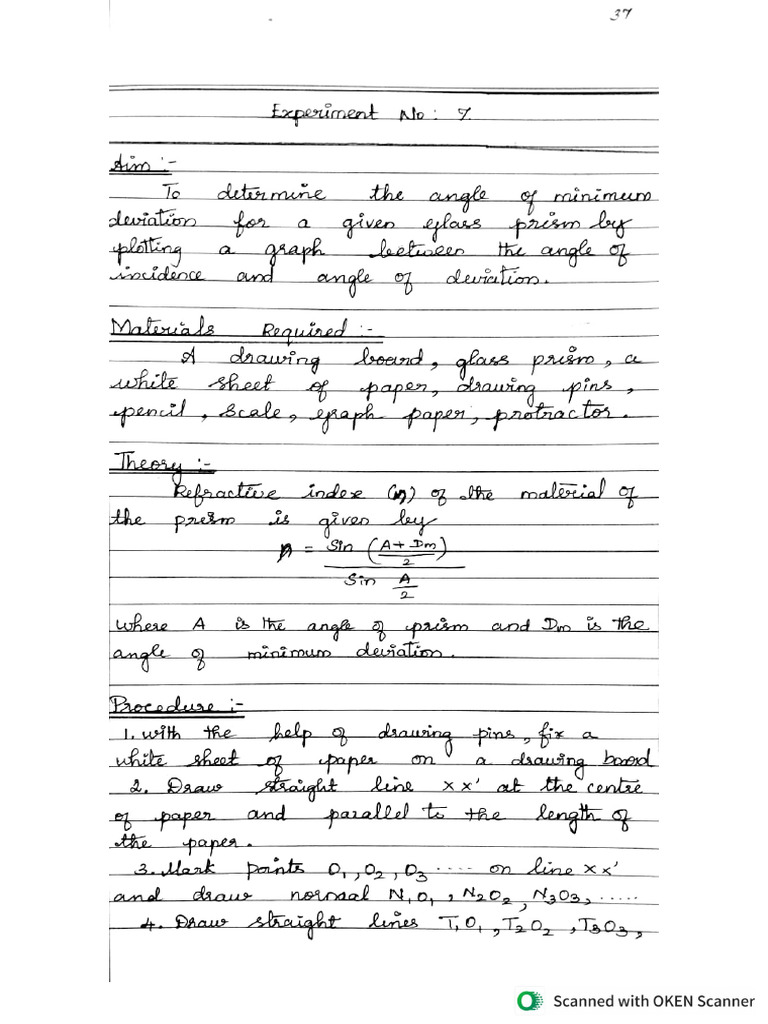 37
Experiment No: 7.
Aim :-
To determine the angle of minimum
deviation for a given glass prism by
plotting a graph between the angle of
incidence and angle of deviation.
Materials Required :-
A drawing board, glass prism, a
white sheet of paper, drawing pins,
pencil, scale, graph paper, protractor.
Theory :-
Refractive index (n) of the material of
the prism is given by
n = Sin ((A + Dm)/2) / Sin (A/2)
where A is the angle of prism and Dm is the
angle of minimum deviation.
Procedure :-
1. with the help of drawing pins, fix a
white sheet of paper on a drawing board
2. Draw straight line xx' at the centre
of paper and parallel to the length of
the paper.
3. Mark points O₁, O₂, O₃ ..... on line xx'
and draw normal N₁O₁, N₂O₂, N₃O₃, .....
4. Draw straight lines T₁O₁, T₂O₂, T₃O₃,
Scanned with OKEN Scanner